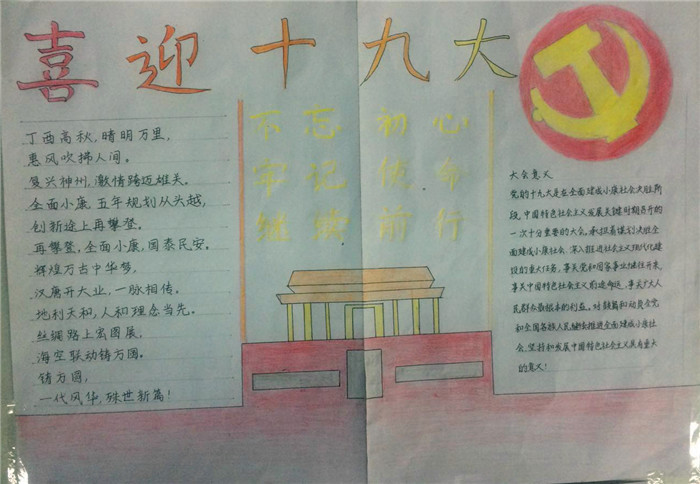 喜迎十九大
不忘初心
牢记使命
继续前行
丁酉高秋，晴明万里，
惠风吹拂人间。
复兴神州，激情跨迈雄关。
全面小康，五年规划从头越，
创新途上再攀登。
再攀登，全面小康，国泰民安。
辉煌万古中华梦，
汉唐开大业，一脉相传。
地利天和，人和理念当先。
丝绸路上宏图展，
海空联动铸方圆。
铸方圆，
一代风华，殊世新篇！
大会意义
党的十九大是在全面建成小康社会决胜阶
段、中国特色社会主义发展关键时期召开的
一次十分重要的大会。承担着谋划决胜全
面建成小康社会、深入推进社会主义现代化建
设的重大任务，事关党和国家事业继往开来，
事关中国特色社会主义前途命运，事关广大人
民群众最根本的利益。对鼓舞和动员全党
和全国各族人民继续推进全面建成小康社
会、坚持和发展中国特色社会主义具有重大
的意义！